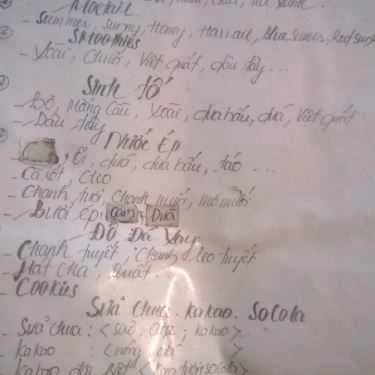 Moctail
- Summer, Sunny, Honey, Hawaii, blue
Smoothies
- Xoài, Chuối, Việt quất, dâu tây...
Sinh tố
- Bơ, Mãng Cầu, Xoài, dưa hấu, dứa, Việt quất
- Dâu tây
Nước Ép
, ổi, dứa, dưa hấu, táo ...
- Cà rốt,
- Chanh tươi, Chanh muối, mơ muối
- Bưởi ép, Cam, Dừa
Đồ Đá Xay
- Chanh tuyết, Chanh leo tuyết
- Mat Cha,
- Cookies
Sữa Chua. Ka Kao. Socola
- Sữa chua: < , , ka kao>
- Ka kao : <nóng, đá >
- Ka kao